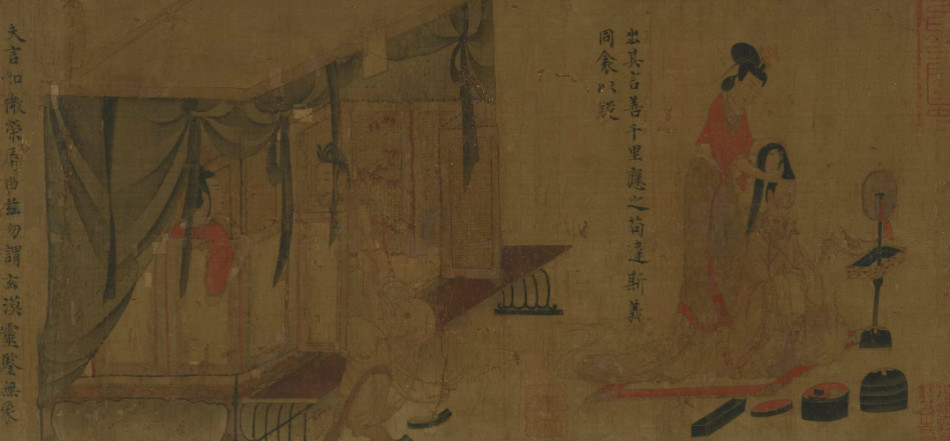 出其言善千里應之苟違斯義
同衾以疑
夫言如微榮辱由茲勿謂玄漠靈鑒無象